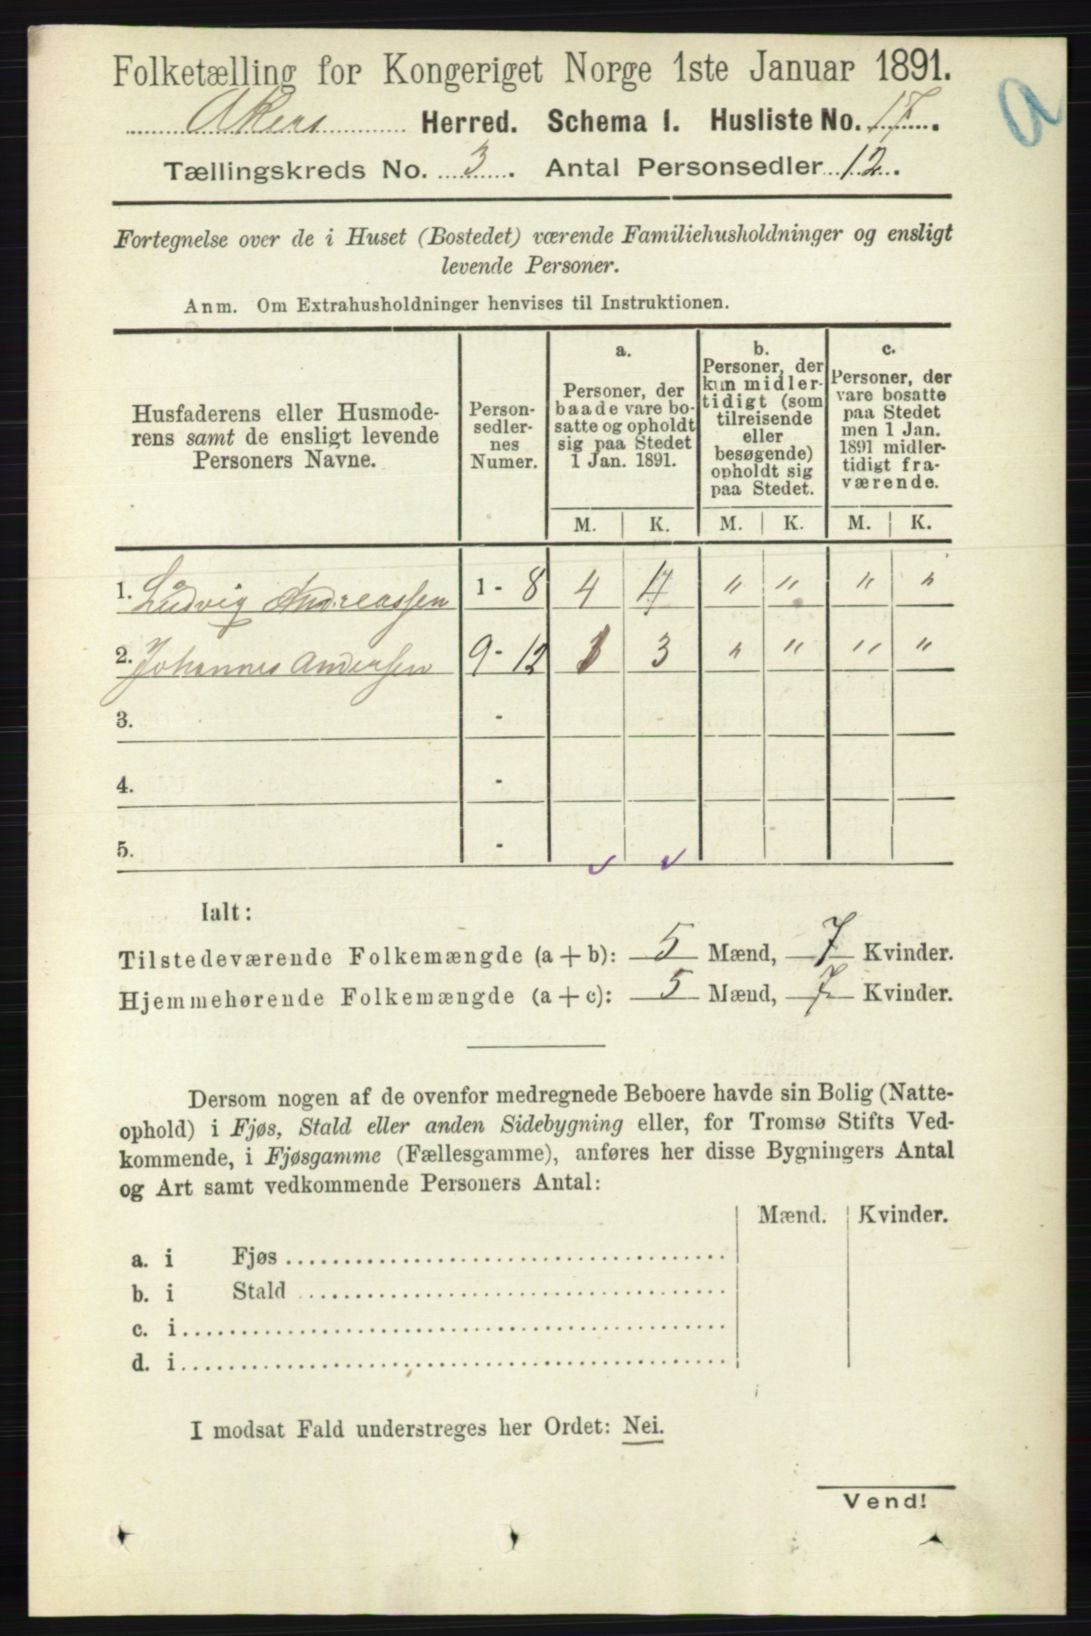 Folketælling for Kongeriget Norge 1ste Januar 1891.
Akers Herred. Schema I. Husliste No. 17.
Tællingskreds No. 3. Antal Personsedler 12.
a
Fortegnelse over de i Huset (Bostedet) værende Familiehusholdninger og ensligt
levende Personer.
Anm. Om Extrahusholdninger henvises til Instruktionen.
Husfaderens eller Husmode-
rens samt de ensligt levende
Personers Navne.
Person-
sedler-
nes
Numer.
a.
Personer, der
baade vare bo-
satte og opholdt
sig paa Stedet
1 Jan. 1891.
b.
Personer, der
kun midler-
tidigt (som
tilreisende
eller
besøgende)
opholdt sig
paa Stedet.
c.
Personer, der
vare bosatte
paa Stedet
men 1 Jan.
1891 midler-
tidigt fra-
værende.
M. K. M. K. M. K.
1. Ludvig Andreassen 1 - 8 4 4 " " " "
2. Johannes Andersen 9 - 12 1 3 " " " "
3. -
4. -
5. -
Ialt:
Tilstedeværende Folkemængde (a + b): 5 Mænd, 7 Kvinder.
Hjemmehørende Folkemængde (a + c): 5 Mænd, 7 Kvinder.
Dersom nogen af de ovenfor medregnede Beboere havde sin Bolig (Natte-
ophold) i Fjøs, Stald eller anden Sidebygning eller, for Tromsø Stifts Ved-
kommende, i Fjøsgamme (Fællesgamme), anføres her disse Bygningers Antal
og Art samt vedkommende Personers Antal:
Mænd. Kvinder.
a. i Fjøs
b. i Stald
c. i
d. i
I modsat Fald understreges her Ordet: Nei.
Vend!